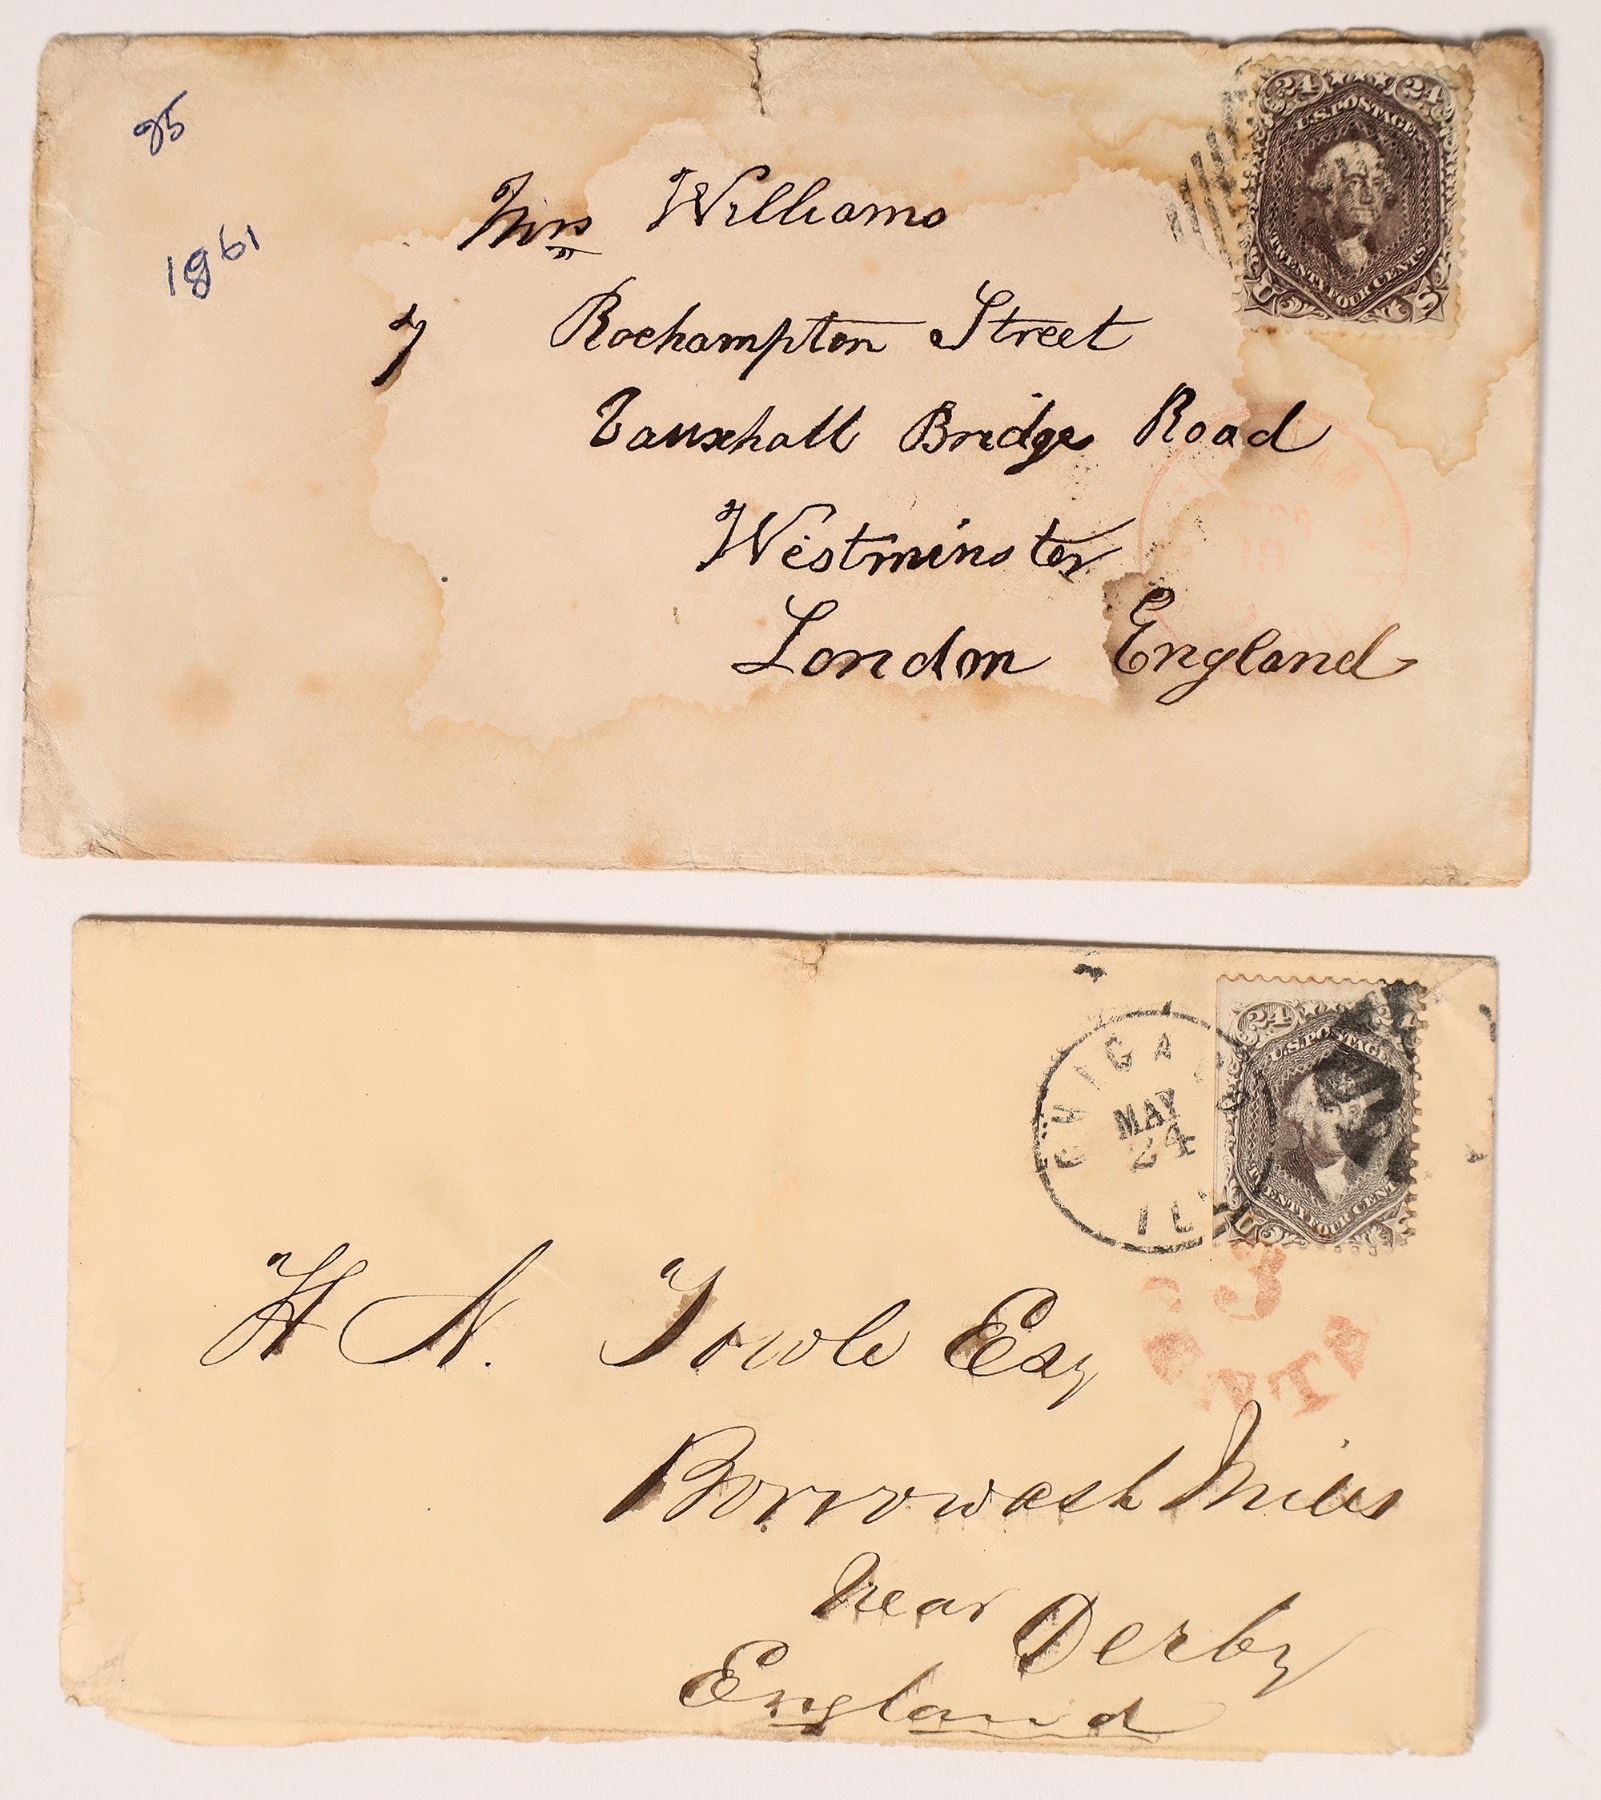 25
1861
24 24
U.S. POSTAGE
TWENTY FOUR CENTS
U S
Mrs Williams
7 Roehampton Street
Vauxhall Bridge Road
Westminster
London England
19
24
U.S. POSTAGE
U
CHICAGO
MAY
24
ILL
3
CENTS
H N. Towle Esq
Borrowash Mills
Near Derby
England